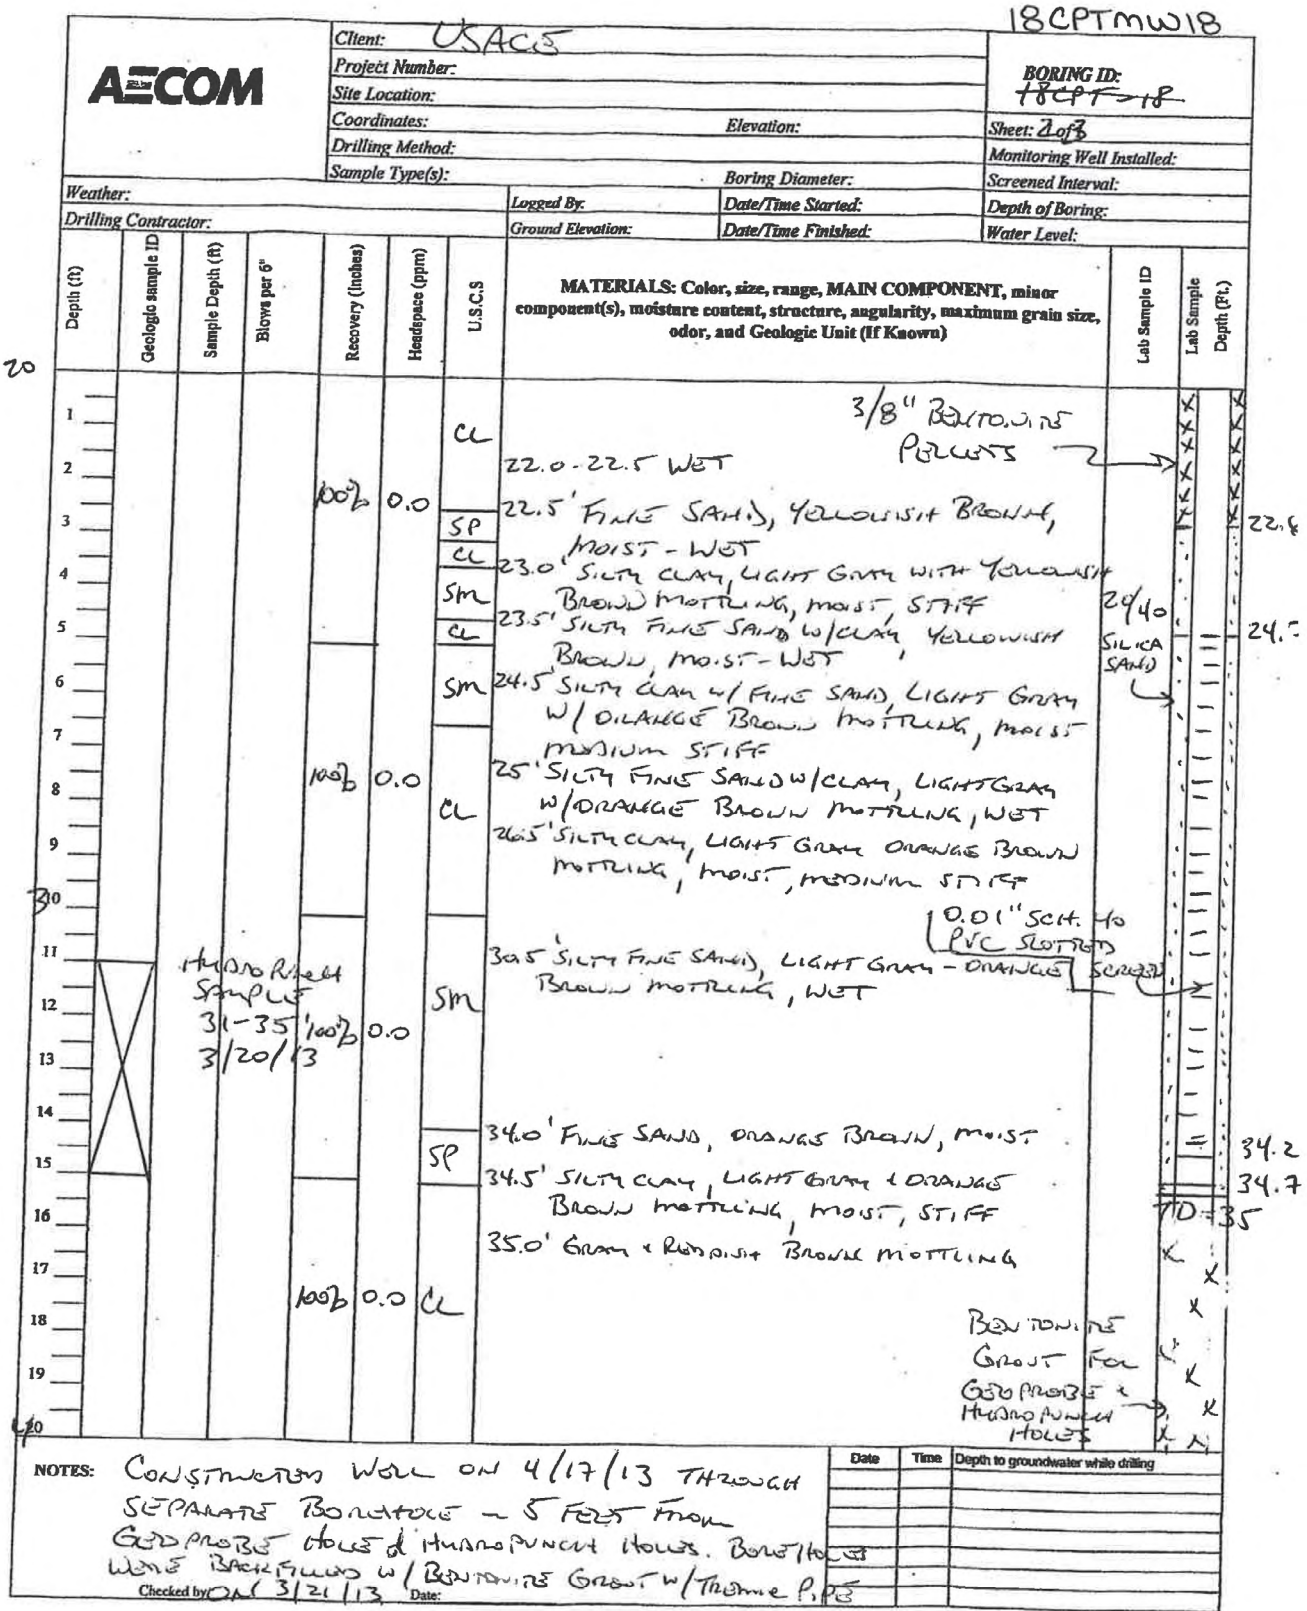 18CPTMW18
AECOM
Client: USACE
Project Number:
Site Location:
Coordinates: Elevation:
Drilling Method:
Sample Type(s): Boring Diameter:
BORING ID:
18CPT-18
Sheet: 2 of 3
Monitoring Well Installed:
Screened Interval:
Weather: Logged By: Date/Time Started: Depth of Boring:
Drilling Contractor: Ground Elevation: Date/Time Finished: Water Level:
Depth (ft)
Geologic sample ID
Sample Depth (ft)
Blows per 6"
Recovery (Inches)
Headspace (ppm)
U.S.C.S
MATERIALS: Color, size, range, MAIN COMPONENT, minor
component(s), moisture content, structure, angularity, maximum grain size,
odor, and Geologic Unit (If Known)
Lab Sample ID
Lab Sample
Depth (Ft.)
20
1
2
3
4
5
6
7
8
9
30
11
12
13
14
15
16
17
18
19
40
HYDROPUNCH
SAMPLE
31-35'
3/20/13
100% 0.0
100% 0.0
100% 0.0
100% 0.0
CL
SP
CL
SM
CL
SM
CL
SM
SP
CL
3/8" BENTONITE
PELLETS
22.0-22.5 WET
22.5' FINE SAND, YELLOWISH BROWN,
MOIST - WET
23.0' SILTY CLAY, LIGHT GRAY WITH YELLOWISH
BROWN MOTTLING, MOIST, STIFF
23.5' SILTY FINE SAND W/CLAY, YELLOWISH
BROWN, MOIST-WET
24.5' SILTY CLAY W/ FINE SAND, LIGHT GRAY
W/ ORANGE BROWN MOTTLING, MOIST
MEDIUM STIFF
25' SILTY FINE SAND W/CLAY, LIGHT GRAY
W/ORANGE BROWN MOTTLING, WET
26.5' SILTY CLAY, LIGHT GRAY ORANGE BROWN
MOTTLING, MOIST, MEDIUM STIFF
30.5' SILTY FINE SAND, LIGHT GRAY - ORANGE
BROWN MOTTLING, WET
34.0' FINE SAND, ORANGE BROWN, MOIST
34.5' SILTY CLAY, LIGHT GRAY & ORANGE
BROWN MOTTLING, MOIST, STIFF
35.0' GRAY & REDDISH BROWN MOTTLING
20/40
SILICA
SAND
0.01" SCH. 40
PVC SLOTTED
SCREEN
34.2
34.7
TD=35
BENTONITE
GROUT FOR
GEOPROBE &
HYDROPUNCH
HOLES
NOTES: CONSTRUCTED WELL ON 4/17/13 THROUGH
SEPARATE BOREHOLE ~ 5 FEET FROM
GEOPROBE HOLE & HYDROPUNCH HOLES. BOREHOLES
WERE BACKFILLED W/ BENTONITE GROUT W/TREMIE PIPE
ON 3/21/13
Checked by: Date:
Date Time Depth to groundwater while drilling